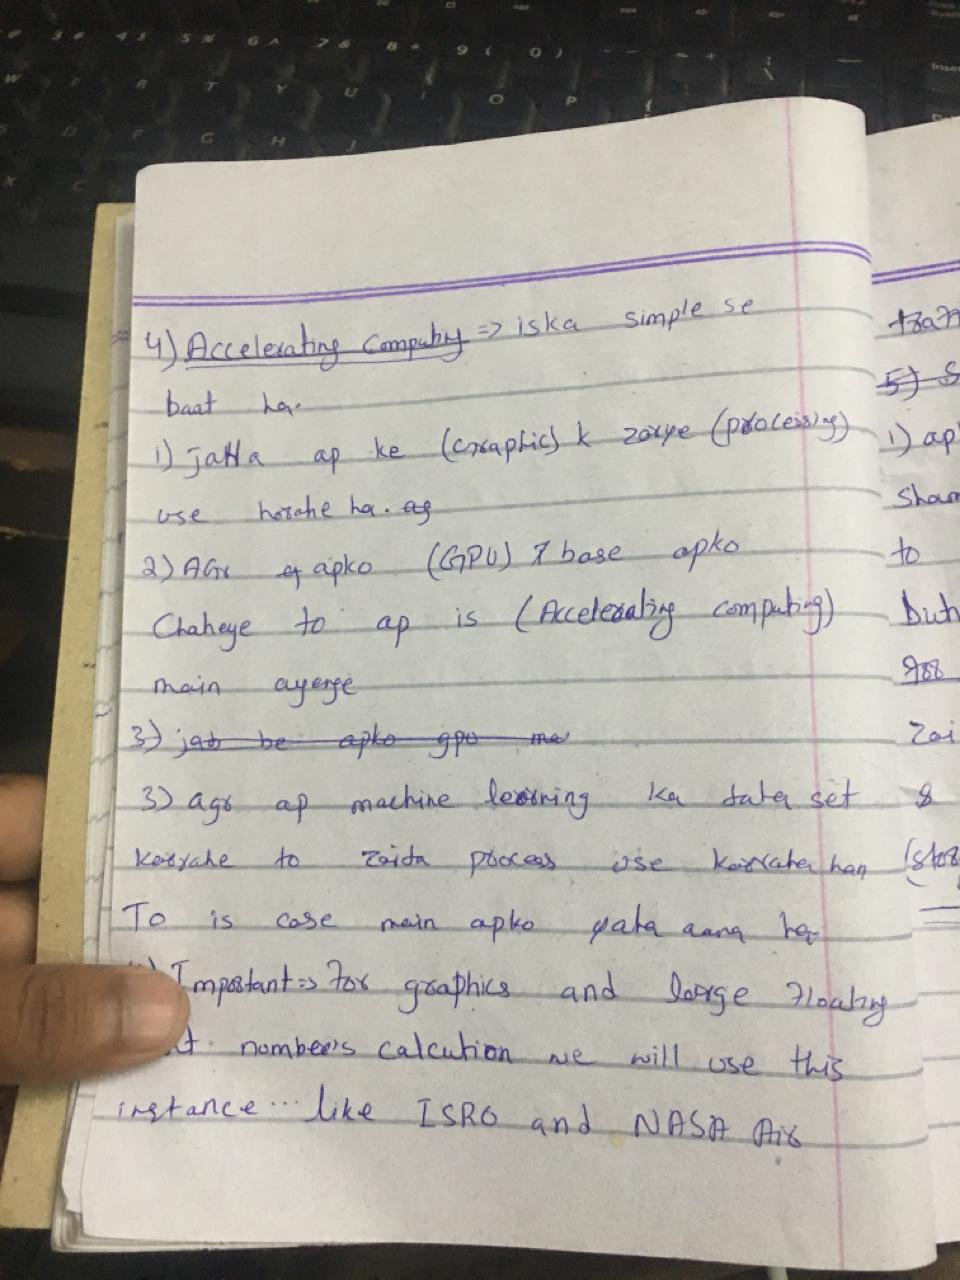 4) Accelerating Computing => iska simple se
baat ha.
1) jaHa ap ke (Graphic) k zarye (processing)
use horahe ha. ag
2) AGr apko (GPU) base apko
Chaheye to ap is (Accelerating computing)
main ayenge
3) jab be apko gpu ma
3) agr ap machine learning ka data set
karrahe to zaida process use karrahe han
To is case main apko yaha aana ha
Important => for graphics and large Floating
number's calcution we will use this
instance... like ISRO and NASA Air
5) S
1) ap
Sham
to
zai
8